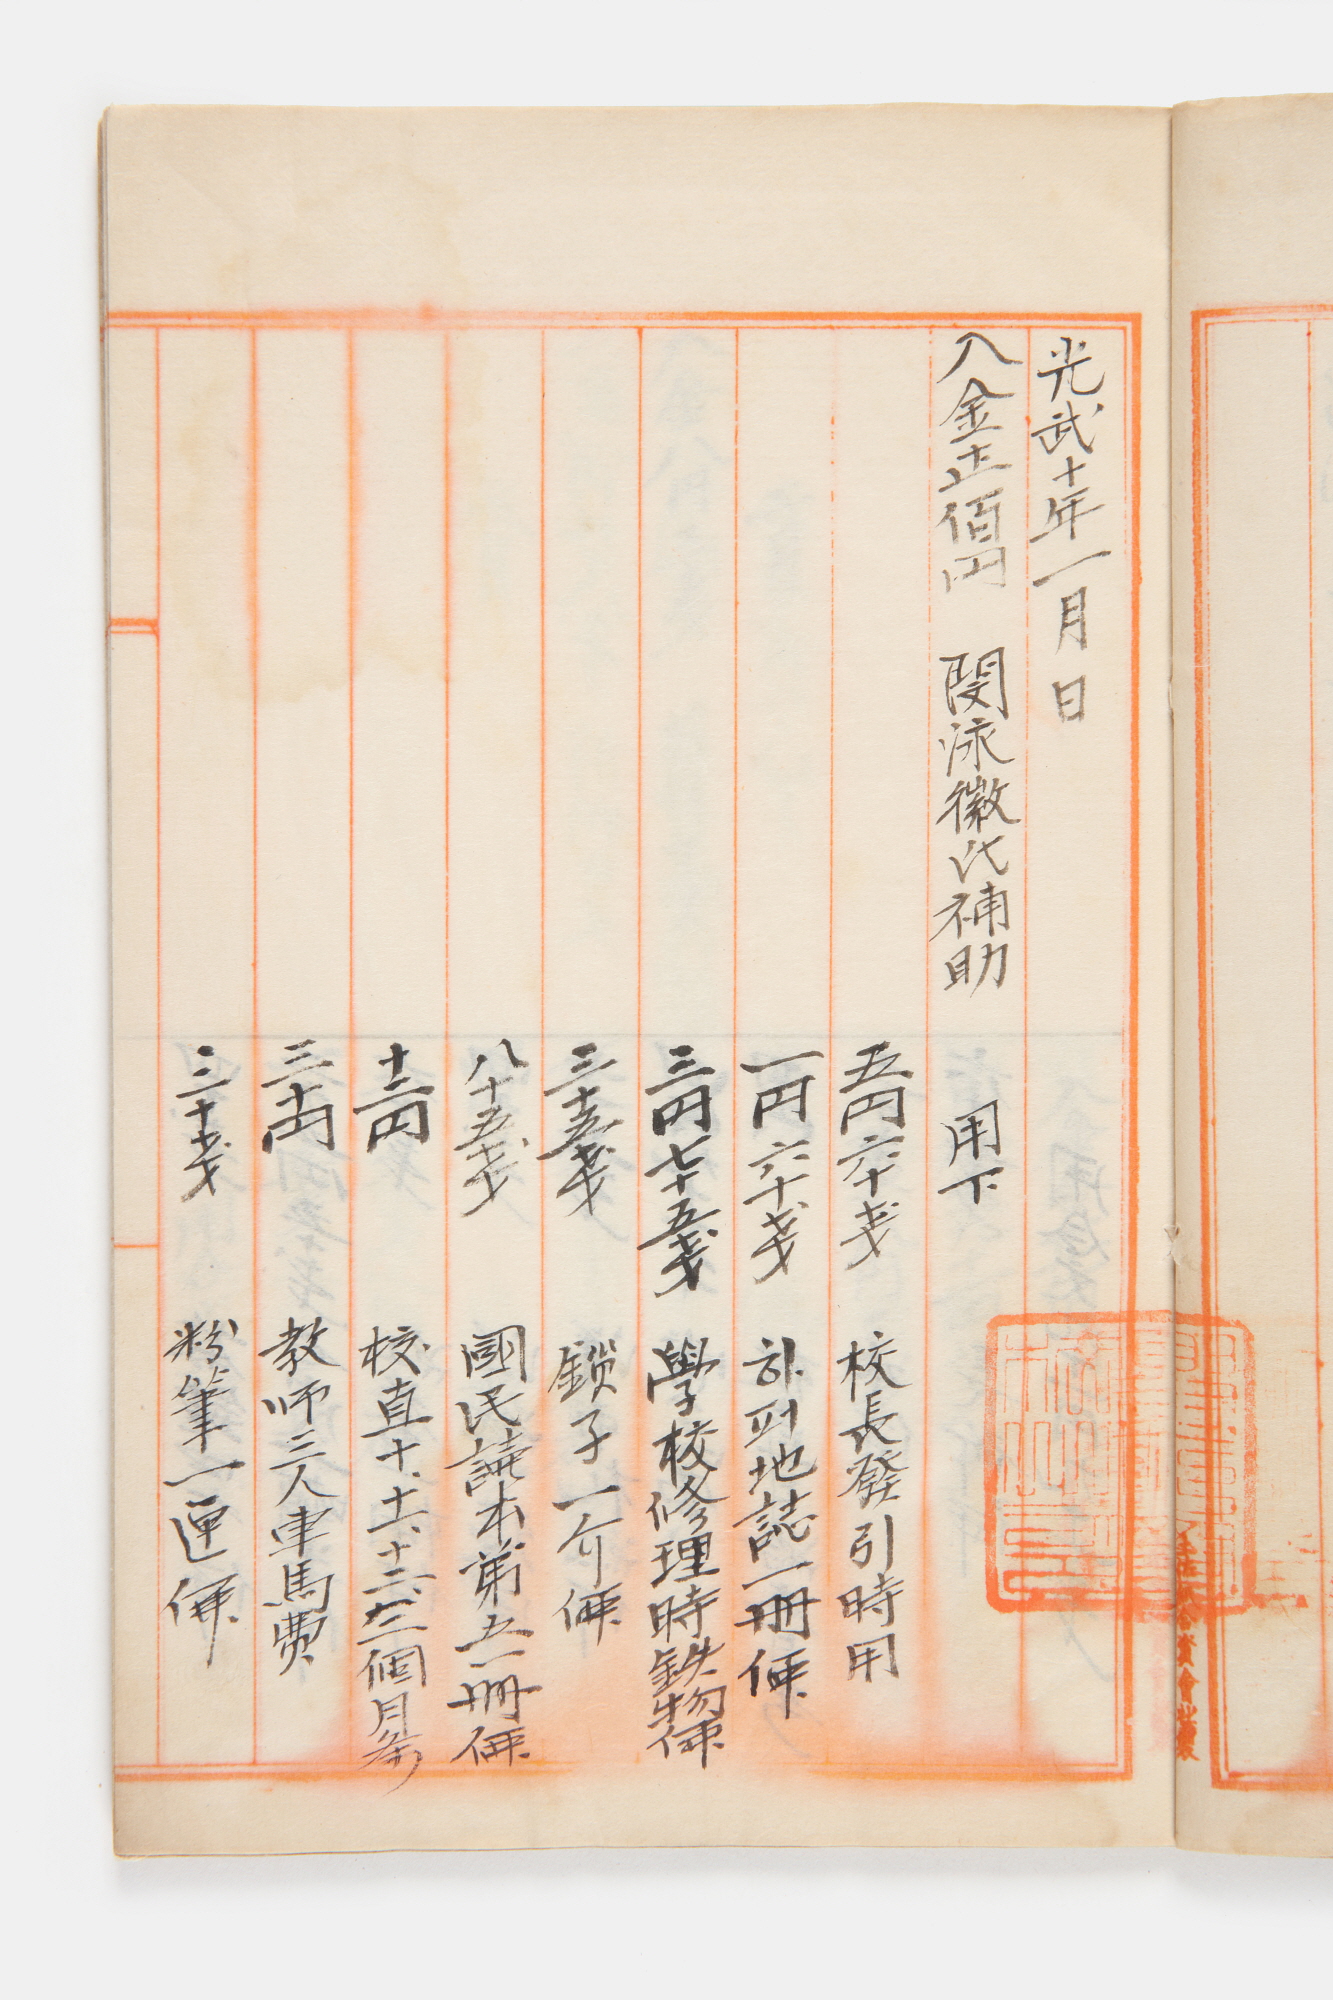 光武十年一月 日
入金正佰円 閔泳徽氏補助
用下
五円六十戔 校長發引時用
一円六十戔 하페地誌一冊価
三円七十五戔 學校修理時鉄物価
三十五戔 鎖子一介価
八十五戔 國民讀本第五一冊価
十二円 校直十、十一、十二、三個月条
三十円 教師三人車馬費
三十戔 粉筆一匣価